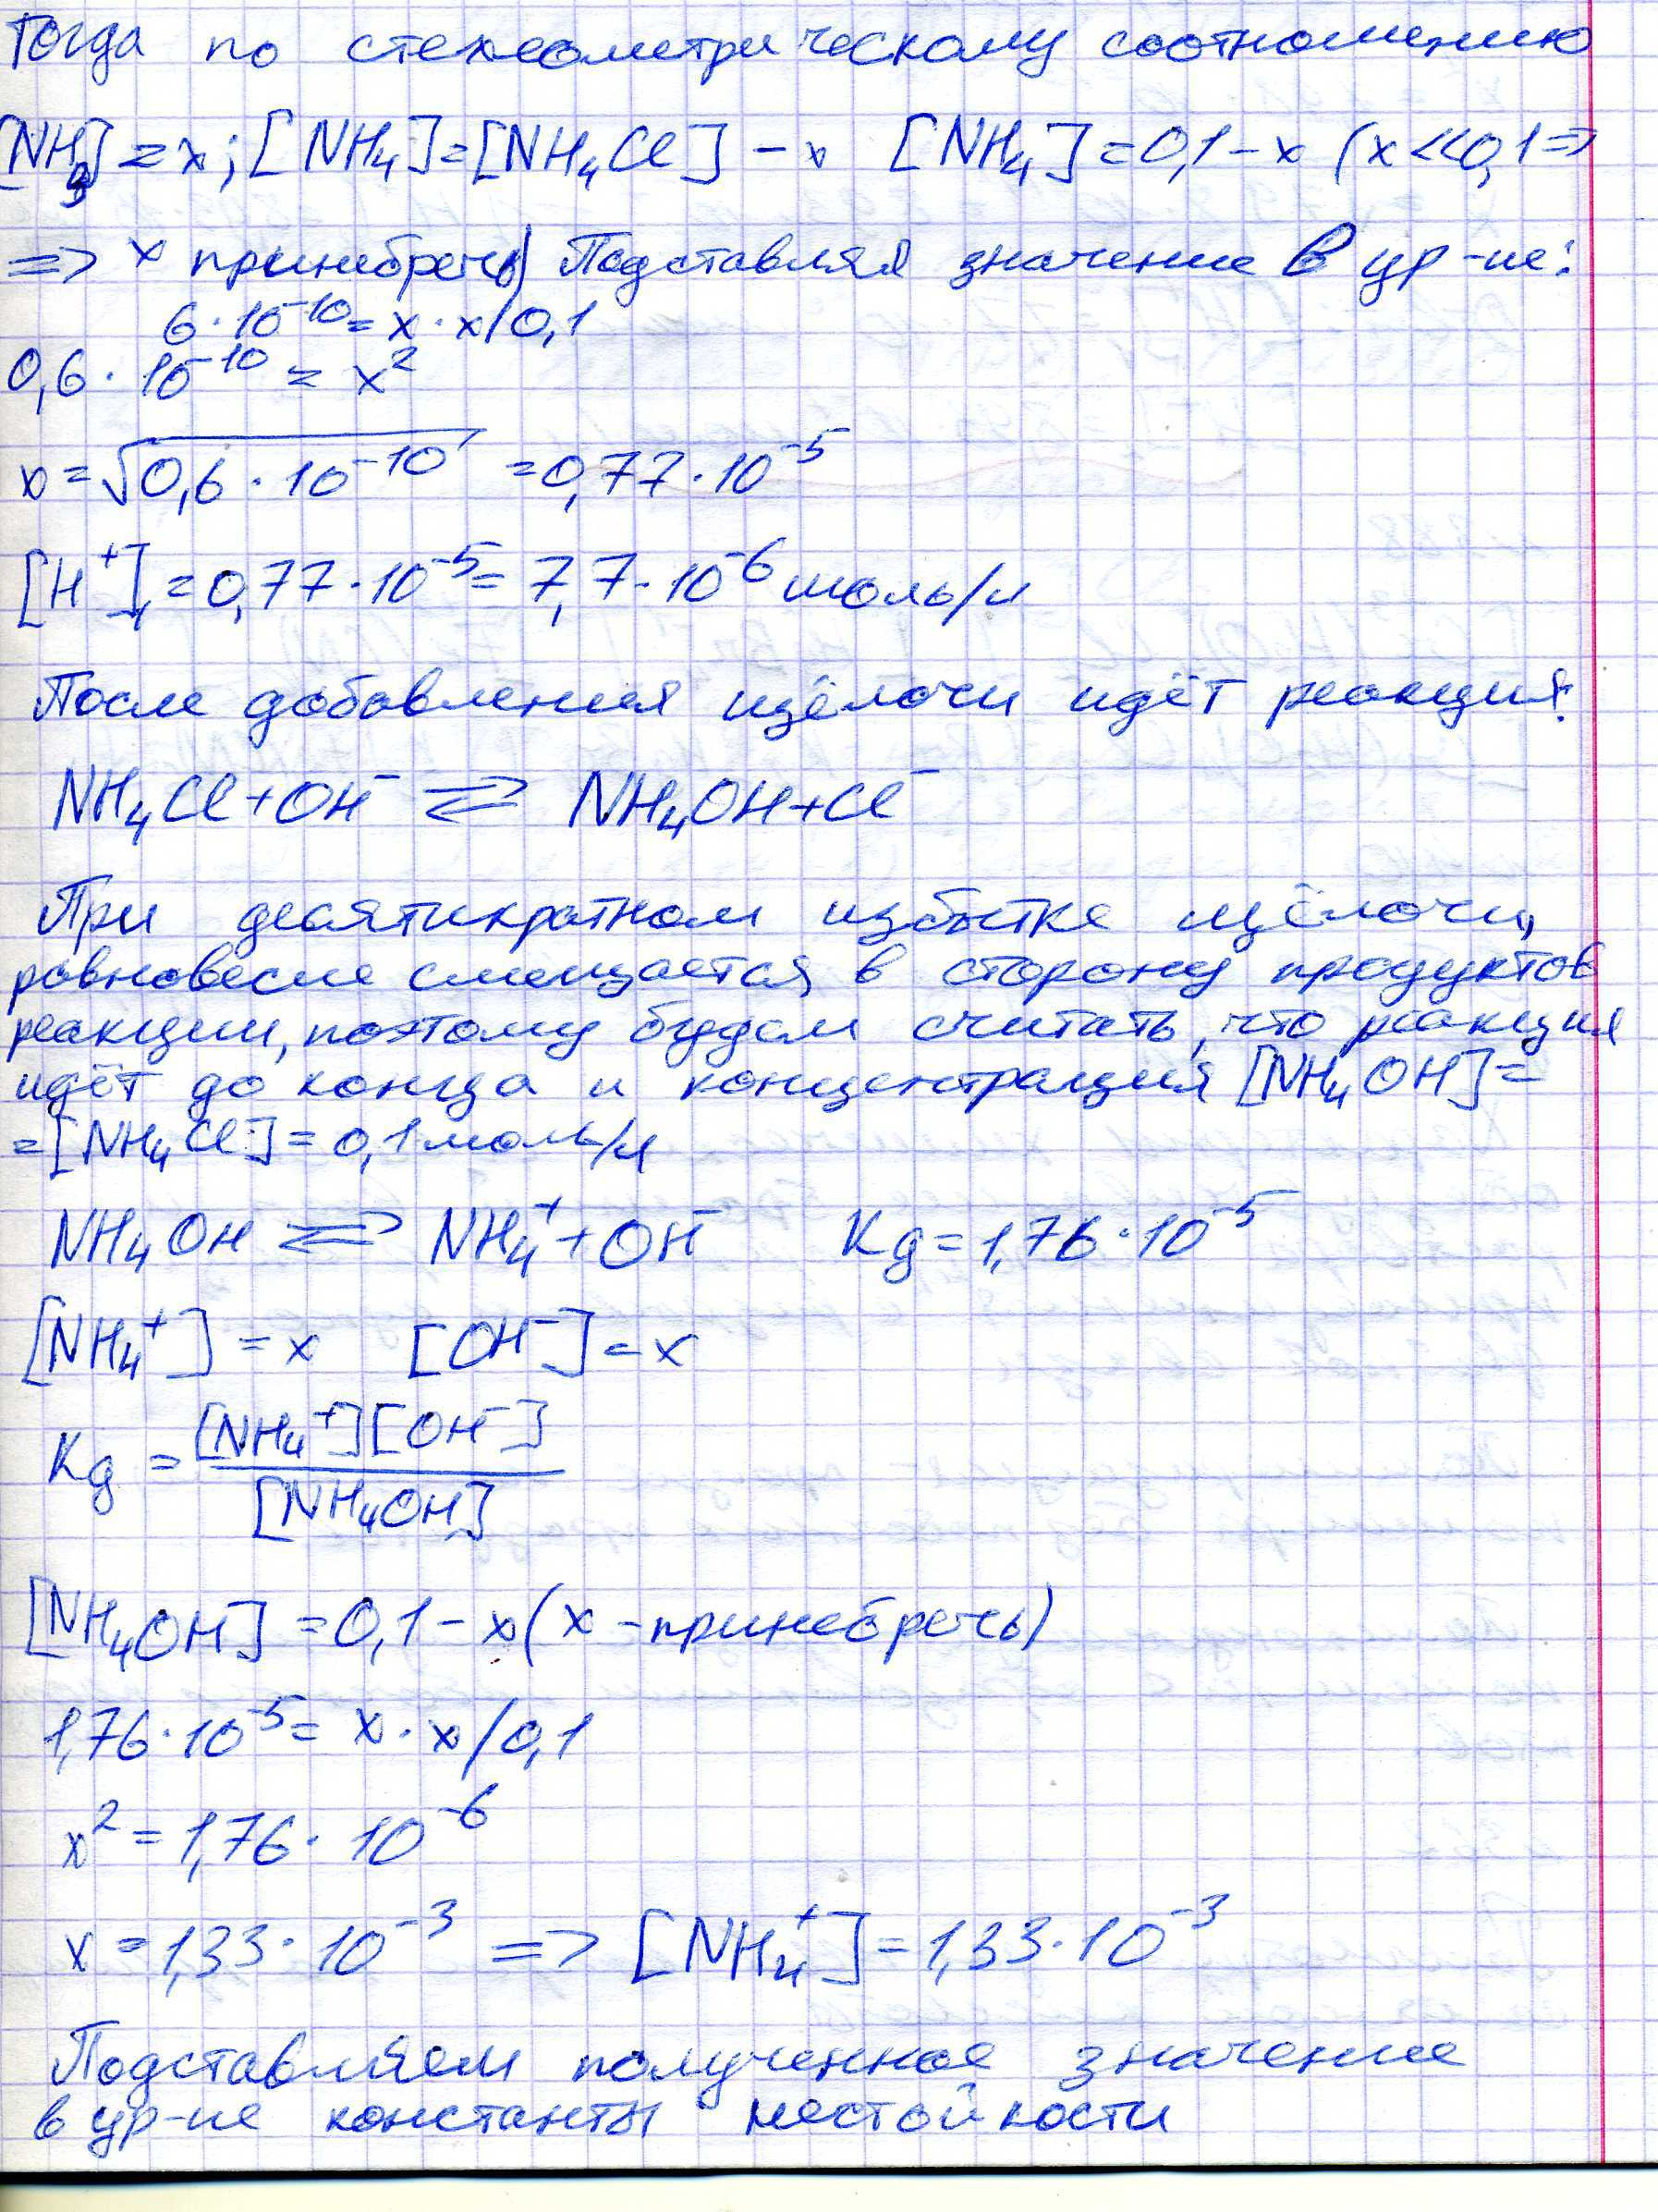 Тогда по стехеометрическому соотношению
[NH3] = x; [NH4] = [NH4Cl] - x [NH4] = 0,1 - x (x << 0,1 =>
=> x принебречь) Подставляя значение в ур-ие:
6·10^-10 = x·x/0,1
0,6·10^-10 = x^2
x = √0,6·10^-10 = 0,77·10^-5
[H+] = 0,77·10^-5 = 7,7·10^-6 моль/л
После добавления щёлочи идёт реакция:
NH4Cl + OH^- ⇌ NH4OH + Cl^-
При десятикратном избытке щёлочи,
равновесие смещается в сторону продуктов
реакции, поэтому будем считать, что реакция
идёт до конца и концентрация [NH4OH] =
= [NH4Cl] = 0,1 моль/л
NH4OH ⇌ NH4^+ + OH^- Kд = 1,76·10^-5
[NH4^+] = x [OH^-] = x
Kд = [NH4^+][OH^-]
[NH4OH]
[NH4OH] = 0,1 - x (x - принебречь)
1,76·10^-5 = x·x/0,1
x^2 = 1,76·10^-6
x = 1,33·10^-3 => [NH4^+] = 1,33·10^-3
Подставляем полученное значение
в ур-ие константы нестойкости